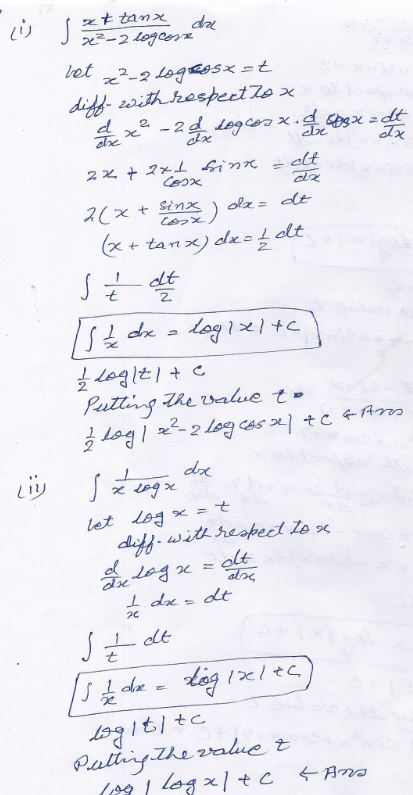 (i) ∫ x + tanx / x² - 2 log cosx dx
let x² - 2 log cosx = t
diff- with respect to x
d/dx x² - 2 d/dx log cos x . d/dx cosx = dt/dx
2x + 2 x 1/cosx sinx = dt/dx
2(x + sinx/cosx) dx = dt
(x + tan x) dx = 1/2 dt
∫ 1/t dt/2
∫ 1/x dx = log |x| + c
1/2 log |t| + c
Putting the value t
1/2 log | x² - 2 log cos x | + c ← Ans
(ii) ∫ 1/x log x dx
let log x = t
diff. with respect to x
d/dx log x = dt/dx
1/x dx = dt
∫ 1/t dt
∫ 1/x dx = log |x| + c
log |t| + c
Putting the value t
log | log x | + c ← Ans